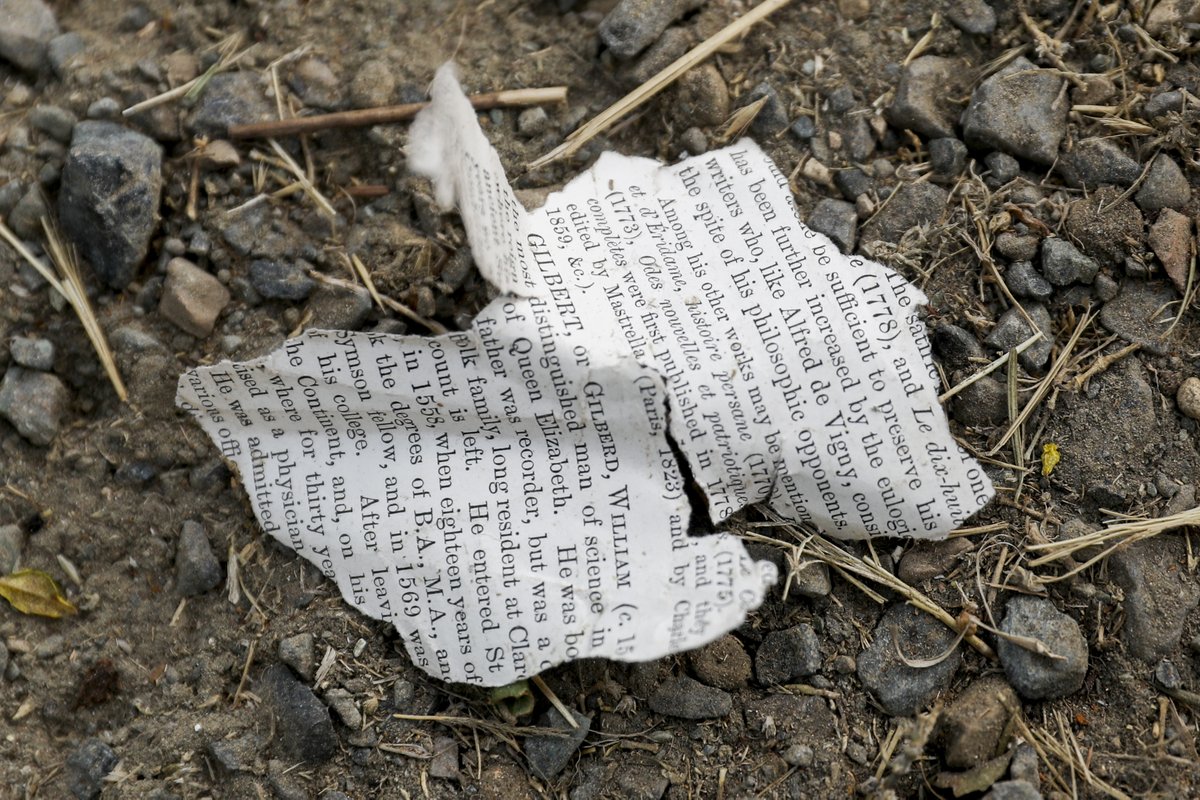 one
(1778), and Le dix-hui
be sufficient to preserve his
has been further increased by the eulog
writers who, like Alfred de Vigny, cons
the spite of his philosophic opponents.
Among his other works may be mention
et d'Eridame, histoire persane (177
(1773), Odes nouvelles et patriotique
complètes were first published in 1788
edited by Mastrella (Paris, 1823) and by Charl
1859, &c.).
(1775).
and they
GILBERT, or GILBERD, WILLIAM (c. 15
the most distinguished man of science in
of Queen Elizabeth. He was bo
father was recorder, but was a
olk family, long resident at Clar
ount is left. He entered St
in 1558, when eighteen years of
k the degrees of B.A., M.A., an
Symson fellow, and in 1569 was
his college. After leavi
he Continent, and, on his
where for thirty yea
ised as a physician
He was admitted
arious offi